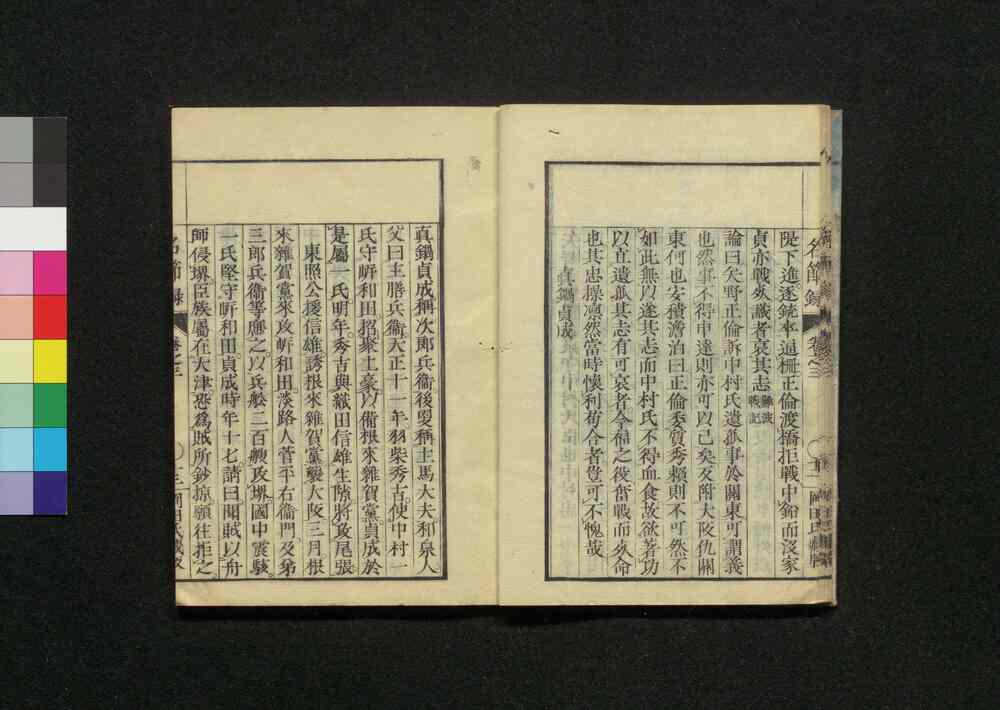 名節錄 卷之三 岡田氏藏版
隄下進逐銃卒逼柵正倫渡橋拒戰中鉛而沒家
貞亦戰死識者哀其志難波戰記
論曰矢野正倫訴中村氏遺孤事於關東可謂義
也然事不得申達則亦可以已矣反附大阪仇關
東何也安積澹泊曰正倫委質秀賴則不可然不
如此無以遂其志而中村氏不得血食故欲著功
以立遺孤其志有可哀者今福之役奮戰而死命
也其忠操凛然當時懷利苟合者豈可不愧哉
眞鍋貞成
眞鍋貞成稱次郎兵衞後更稱主馬大夫和泉人
父曰主膳兵衞天正十一年羽柴秀吉使中村一
氏守岸和田招聚土豪以備根來雜賀黨貞成於
是屬一氏明年秀吉與織田信雄生隙將攻尾張
東照公援信雄誘根來雜賀黨襲大阪三月根
來雜賀黨來攻岸和田淡路人菅平右衞門及弟
三郎兵衞等應之以兵船二百艘攻堺國中震駭
一氏堅守岸和田貞成時年十七請曰聞賊以舟
師侵堺臣族屬在大津恐爲賊所鈔掠願往拒之
名節錄 卷之三 岡田氏藏版